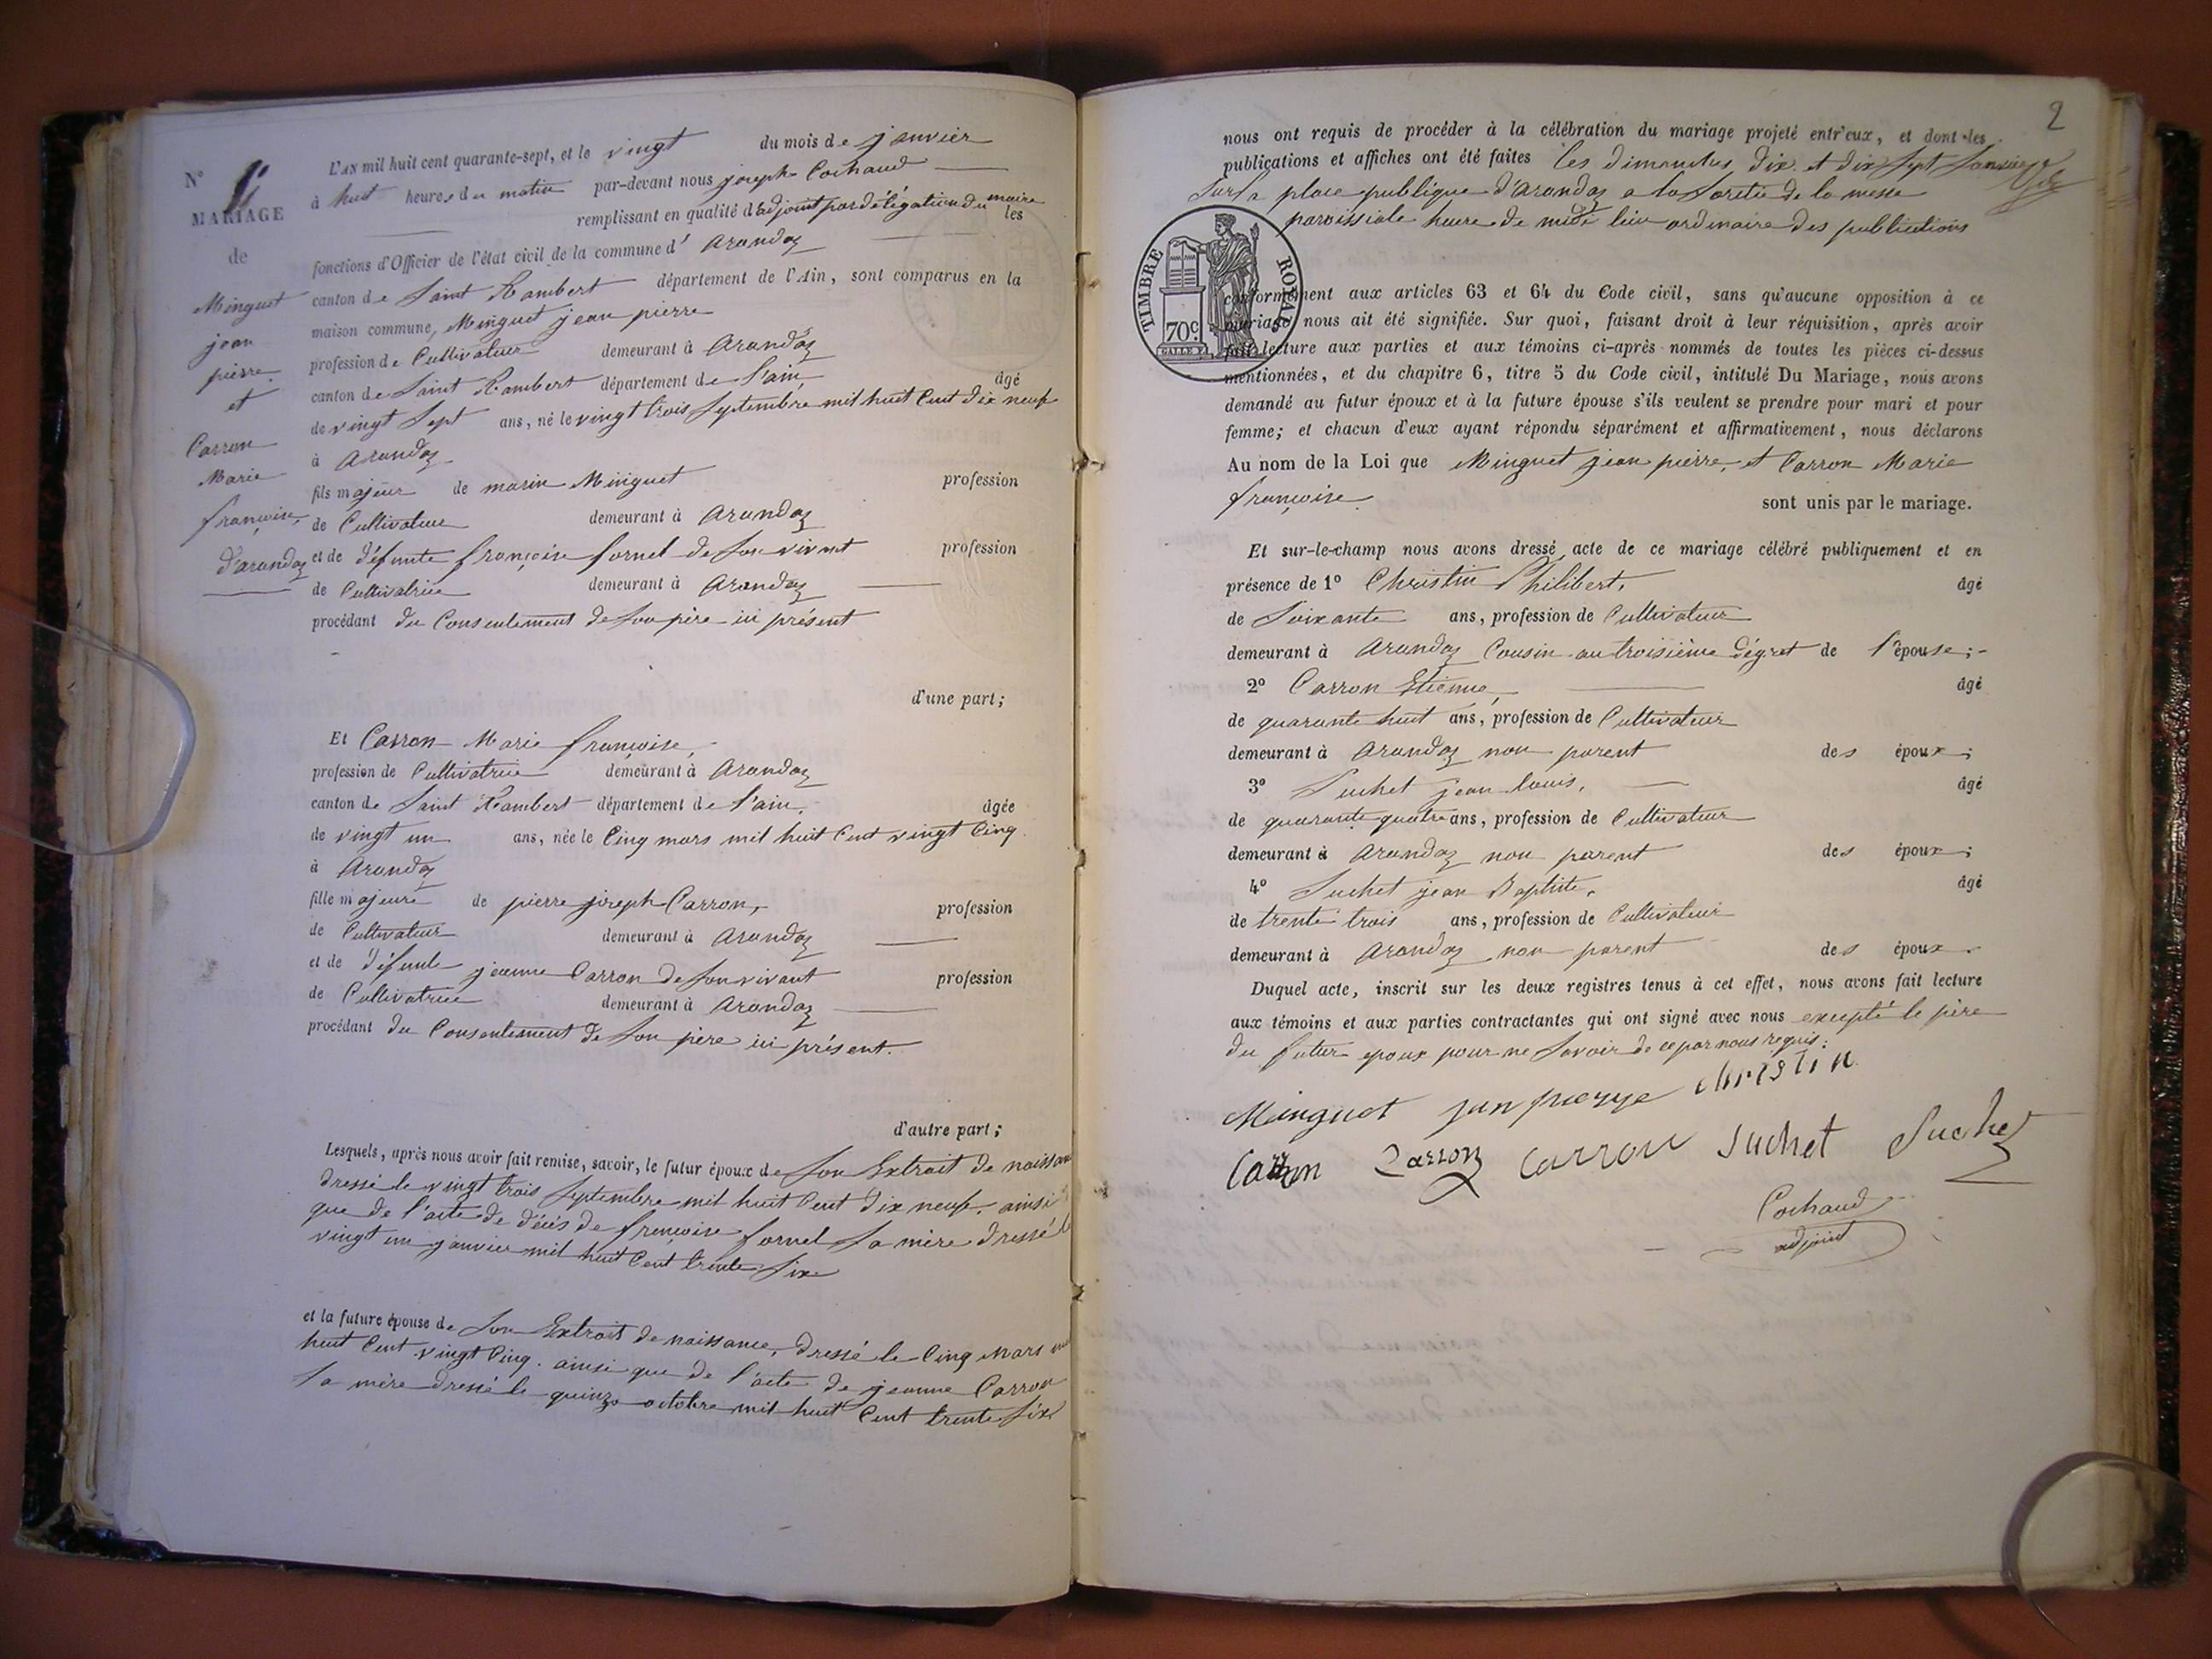 N° 1er
MARIAGE
de
Minguet
jean
pierre
et
Carron
Marie
françoise,
d'arandaz
L'AN mil huit cent quarante-sept, et le vingt du mois de janvier
à huit heures du matin par-devant nous joseph Cochaud
remplissant en qualité d'adjoint par délégation du maire les
fonctions d'Officier de l'état civil de la commune d' arandaz
canton de Saint Rambert département de l'Ain, sont comparus en la
maison commune, Minguet jean pierre
profession de Cultivateur demeurant à Arandaz
canton de Saint Rambert département de l'ain, âgé
de vingt Sept ans, né le vingt trois Septembre mil huit Cent dix neuf
à Arandaz
fils majeur de marin Minguet profession
de Cultivateur demeurant à Arandaz
et de défunte françoise fornel de Son vivant profession
de Cultivatrice demeurant à Arandaz
procédant du Consentement de Son père ici présent
d'une part;
Et Carron Marie françoise,
profession de Cultivatrice demeurant à Arandaz
canton de Saint Rambert département de l'ain, âgée
de vingt un ans, née le Cinq mars mil huit Cent vingt Cinq
à Arandaz
fille majeure de pierre joseph Carron, profession
de Cultivateur demeurant à Arandaz
et de défunte jeanne Carron de Son vivant profession
de Cultivatrice demeurant à Arandaz
procédant du Consentement de Son père ici présent.
d'autre part;
Lesquels, après nous avoir fait remise, savoir, le futur époux de Son Extrait de naissan
dressé le vingt trois Septembre mil huit Cent dix neuf, ainsi
que de l'acte de décès de françoise fornel Sa mère dressé le
vingt un janvier mil huit Cent trente Six
et la future épouse de Son Extrait de naissance, dressé le Cinq mars mil
huit Cent vingt Cinq. ainsi que de l'acte de jeanne Carron
Sa mère dressé le quinze octobre mil huit Cent trente Six
2
nous ont requis de procéder à la célébration du mariage projeté entr'eux, et dont les
publications et affiches ont été faites les dimanches dix et dix Sept Janvier
Sur la place publique d'Arandaz a la Sortie de la messe
paroissiale heure de midi lieu ordinaire des publications
TIMBRE ROYAL
70c.
conformément aux articles 63 et 64 du Code civil, sans qu'aucune opposition à ce
mariage nous ait été signifiée. Sur quoi, faisant droit à leur réquisition, après avoir
fait lecture aux parties et aux témoins ci-après nommés de toutes les pièces ci-dessus
mentionnées, et du chapitre 6, titre 5 du Code civil, intitulé Du Mariage, nous avons
demandé au futur époux et à la future épouse s'ils veulent se prendre pour mari et pour
femme; et chacun d'eux ayant répondu séparément et affirmativement, nous déclarons
Au nom de la Loi que Minguet jean pierre, et Carron Marie
françoise sont unis par le mariage.
Et sur-le-champ nous avons dressé acte de ce mariage célébré publiquement et en
présence de 1° Christin Philibert, âgé
de Soixante ans, profession de Cultivateur
demeurant à Arandaz Cousin au troisième dégret de l'épouse;
2° Carron Etienne, âgé
de quarante huit ans, profession de Cultivateur
demeurant à Arandaz non parent des époux;
3° Suchet jean louis, âgé
de quarante quatre ans, profession de Cultivateur
demeurant à Arandaz non parent des époux;
4° Suchet jean Baptiste, âgé
de trente trois ans, profession de Cultivateur
demeurant à Arandaz non parent des époux.
Duquel acte, inscrit sur les deux registres tenus à cet effet, nous avons fait lecture
aux témoins et aux parties contractantes qui ont signé avec nous excepté le père
du futur epoux pour ne Savoir de ce par nous requis:
Minguet jan pierre christin
Carron Carron Carron Suchet Suchet
Cochaud
adjoint